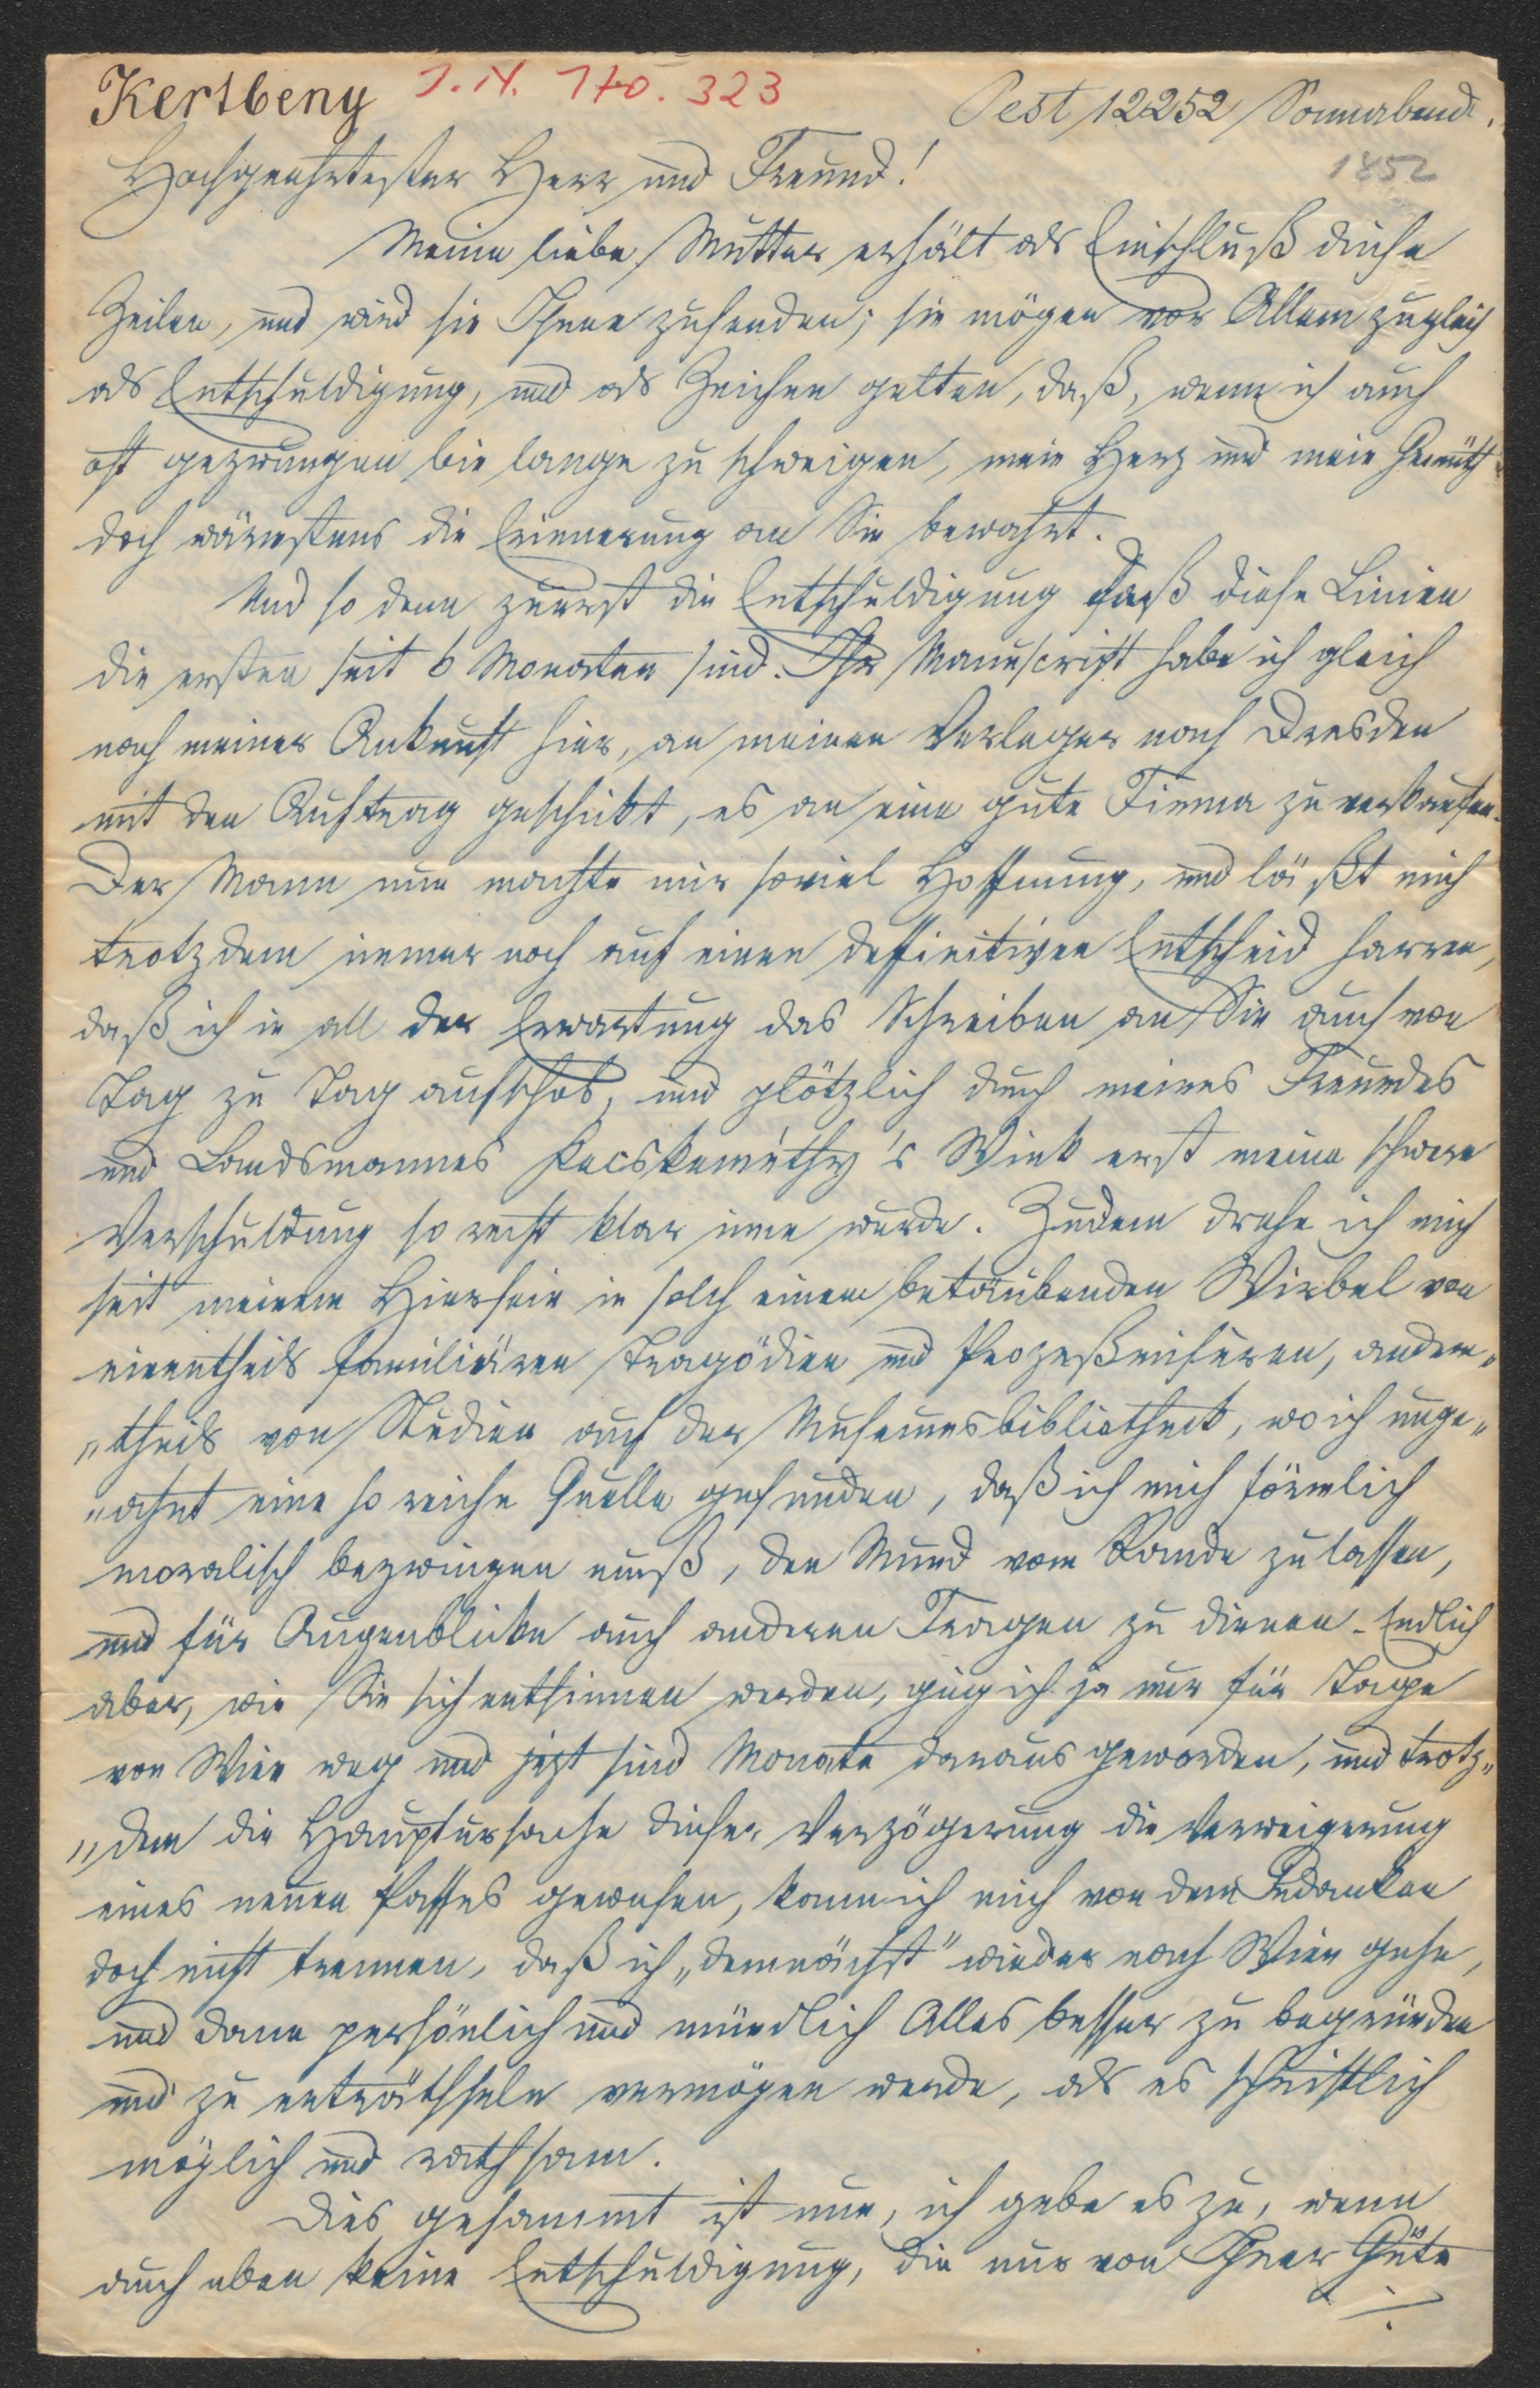 Kertbeny J. N. 170. 323
Pest 12252 Sonnabend.
1852
Hochgeehrtester Herr und Freund!
Meine liebe Mutter erhält als Einschluß diese
Zeilen, und wird sie Ihnen zusenden; sie mögen vor Allem zugleich
als Entschuldigung, und als Zeichen gelten, daß, wenn ich auch
oft gezwungen bin lange zu schweigen, mein Herz und mein Gemüth
doch wärmstens die Erinnerung an Sie bewahrt.
Und so denn zuerst die Entschuldigung daß diese Linien
die ersten seit 6 Monaten sind. Ihr Manuscript habe ich gleich
nach meiner Ankunft hier, an meinen Verleger nach Dresden
mit den Auftrag geschickt, es an eine gute Firma zu verkaufen.
Der Mann nun machte mir soviel Hoffnung, und läßt mich
trotzdem immer noch auf einen deffinitiven Entscheid harren,
daß ich in all der Erwartung das Schreiben an Sie auch von
Tag zu Tag aufschob, und plötzlich durch meines Freundes
und Landsmannes Kecskeméthy's Wink erst meine schwere
Verschuldung so recht klar inne wurde. Zudem drehe ich mich
seit meinem Hiersein in solch einem betäubenden Wirbel von
einentheils familiären Tragödien und Prozeßmiseren, andern"
"theils von Studien auf der Museumsbibliothek, wo ich unge"
"ahnt eine so reiche Quelle gefunden, daß ich mich förmlich
moralisch bezwingen muß, den Mund vom Rande zu lassen,
und für Augenblicke auch anderen Fragen zu dienen. Endlich
aber, wie Sie sich entsinnen werden, ging ich ja nur für Tage
von Wien weg und jezt sind Monate daraus geworden, und trotz"
"dem die Hauptursache dieser Verzögerung die Verweigerung
eines neuen Passes gewesen, kann ich mich von dem Gedanken
doch nicht trennen, daß ich „demnächst" wieder nach Wien gehe,
und dann persönlich und mündlich Alles besser zu begründen
und zu enträthseln vermögen werde, als es schriftlich
möglich und rathsam.
Dies gesammt ist nun, ich gebe es zu, wenn
auch eben keine Entschuldigung, die nur von Ihrer Güte
./.